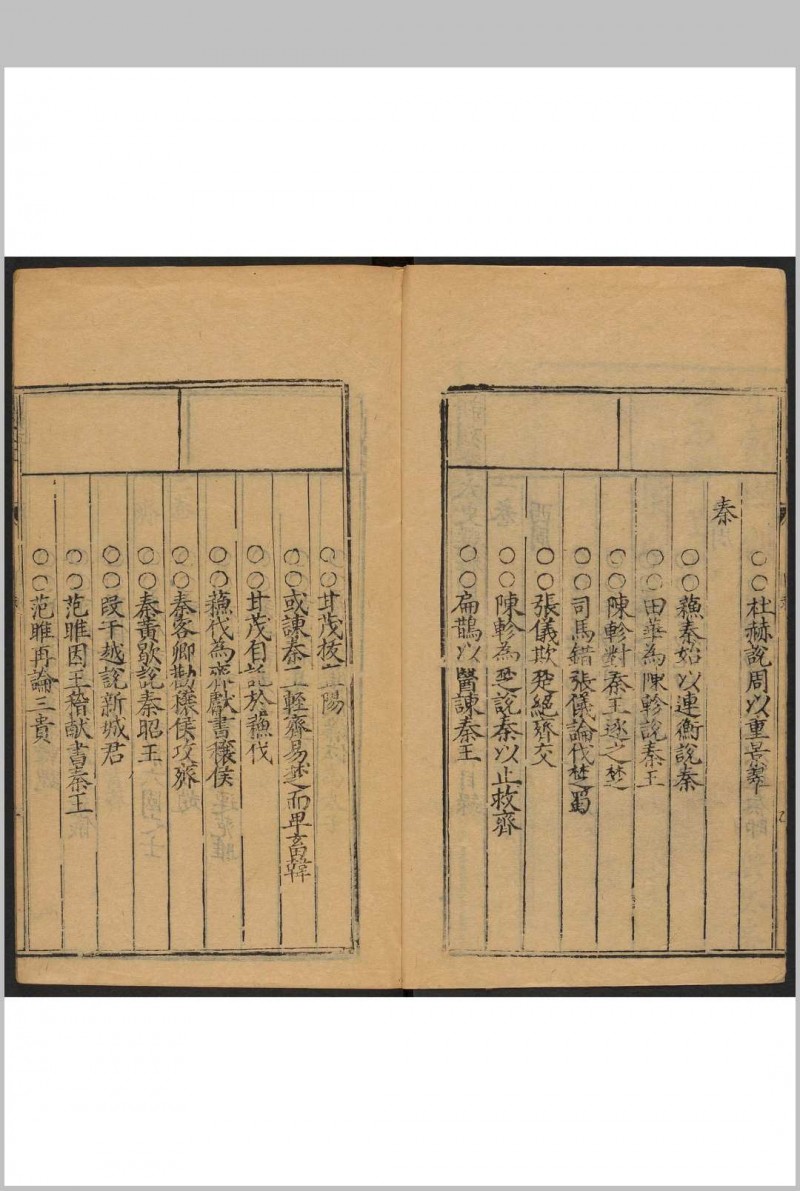 ○○杜赫說周以重景翠
秦
○○蘓秦始以連衡說秦
○○田莘為陳軫說秦王
○○陳軫對秦王逐之楚
○○司馬錯張儀論伐楚蜀
○○張儀欺楚絕齊交
○○陳軫為楚說秦以止救齊
○○扁鵲以醫諫秦王
○○甘茂拔宜陽
○○或諫秦王輕齊易楚而卑畜韓
○○甘茂自託於蘓代
○○蘓代為齊獻書穰侯
○○秦客卿勸穰侯攻齊
○○秦黃歇說秦昭王
○○段干越說新城君
○○范雎因王稽献書秦王
○○范雎再論三貴